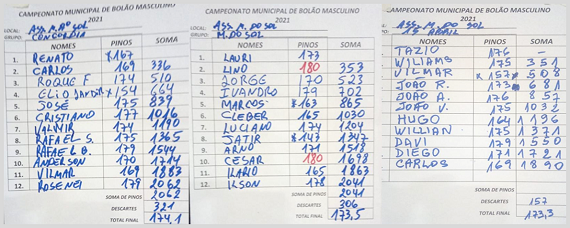 CAMPEONATO MUNICIPAL DE BOLÃO MASCULINO
2021
LOCAL: ASS. M. DO SOL
GRUPO: CONCORDIA
NOMES PINOS SOMA
1. RENATO x167
2. CARLOS 169 336
3. ROQUE F 174 510
4. ELIO JARDIR x154 664
5. JOSÉ 175 839
6. CRISTIANO 177 1016
7. VALMIR 174 1190
8. RAFAEL S. 175 1365
9. RAFAEL B. 179 1544
10. ANDERSON 170 1714
11. VILMAR 169 1883
12. ROSENEI 179 2062
SOMA DE PINOS 2062
DESCARTES 321
TOTAL FINAL 174,1
CAMPEONATO MUNICIPAL DE BOLÃO MASCULINO
2021
LOCAL: ASS. M. DO SOL
GRUPO: M. DO SOL
NOMES PINOS SOMA
1. LAURI 173
2. LINO 180 353
3. JORGE 170 523
4. IVANDRO 179 702
5. MARCOS x163 865
6. CLEBER 165 1030
7. LUCIANO 174 1204
8. JATIR x143 1347
9. ARNO 171 1518
10. CESAR 180 1698
11. ILARIO 165 1863
12. ILSON 178 2041
SOMA DE PINOS 2041
DESCARTES 306
TOTAL FINAL 173,5
CAMPEONATO MUNICIPAL DE BOLÃO MASCULINO
2021
LOCAL: ASS. M. DO SOL
GRUPO: 19 ABRIL
NOMES PINOS SOMA
TAZIO 176 -
WILIAMS 175 351
VILMAR x157 508
JOÃO R. 173 681
JOÃO A. 176 857
JOÃO V. 175 1032
HUGO 164 1196
WILLIAN 175 1371
DAVI 179 1550
DIEGO 171 1721
CARLOS 169 1890
SOMA DE PINOS
DESCARTES 157
TOTAL FINAL 173,3